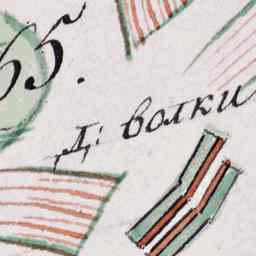 65.
Д: волки